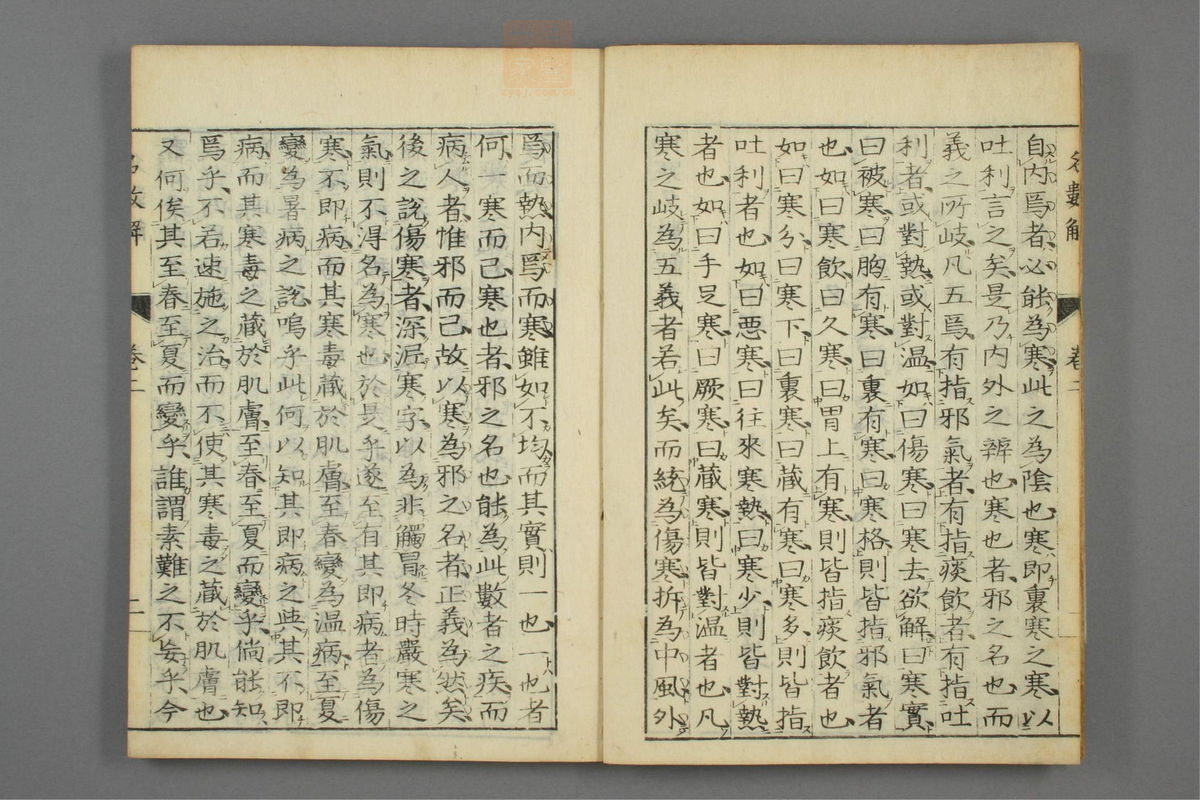 名數解 卷二
自內爲者必能為寒此之為陰也寒即裏寒之寒以
吐利言之矣是乃內外之辨也寒也者邪之名也而
義之所岐凡五焉有指邪氣者有指痰飲者有指吐
利者或對熱或對温如曰傷寒曰寒去欲解曰寒實
曰被寒曰胸有寒曰裏有寒曰寒格則皆指邪氣者
也如曰寒飲曰久寒曰胃上有寒則皆指痰飲者也
如曰寒分曰寒下曰裏寒曰藏有寒曰寒多則皆指
吐利者也如曰惡寒曰往來寒熱曰寒少則皆對熱
者也如曰手足寒曰厥寒曰藏寒則皆對温者也凡
寒之岐為五義者若此矣而統為傷寒拆為中風外
爲而熱內爲而寒雖如不均而其實則一也一也者
何一寒而已寒也者邪之名也能為此數者之疾而
病人者惟邪而已故以寒為邪之名者正義為然矣
後之說傷寒者深泥寒字以為非觸冒冬時嚴寒之
氣則不得名為寒也於是乎遂至有其即病者為傷
寒不即病而其寒毒藏於肌膚至春變為温病至夏
變為暑病之說嗚乎此何以知其即病之與其不即
病而其寒毒之藏於肌膚至春至夏而變乎倘能知
爲乎不若速施之治而不使其寒毒之藏於肌膚也
又何俟其至春至夏而變乎誰謂素難之不妄乎今
名數解 卷二 二